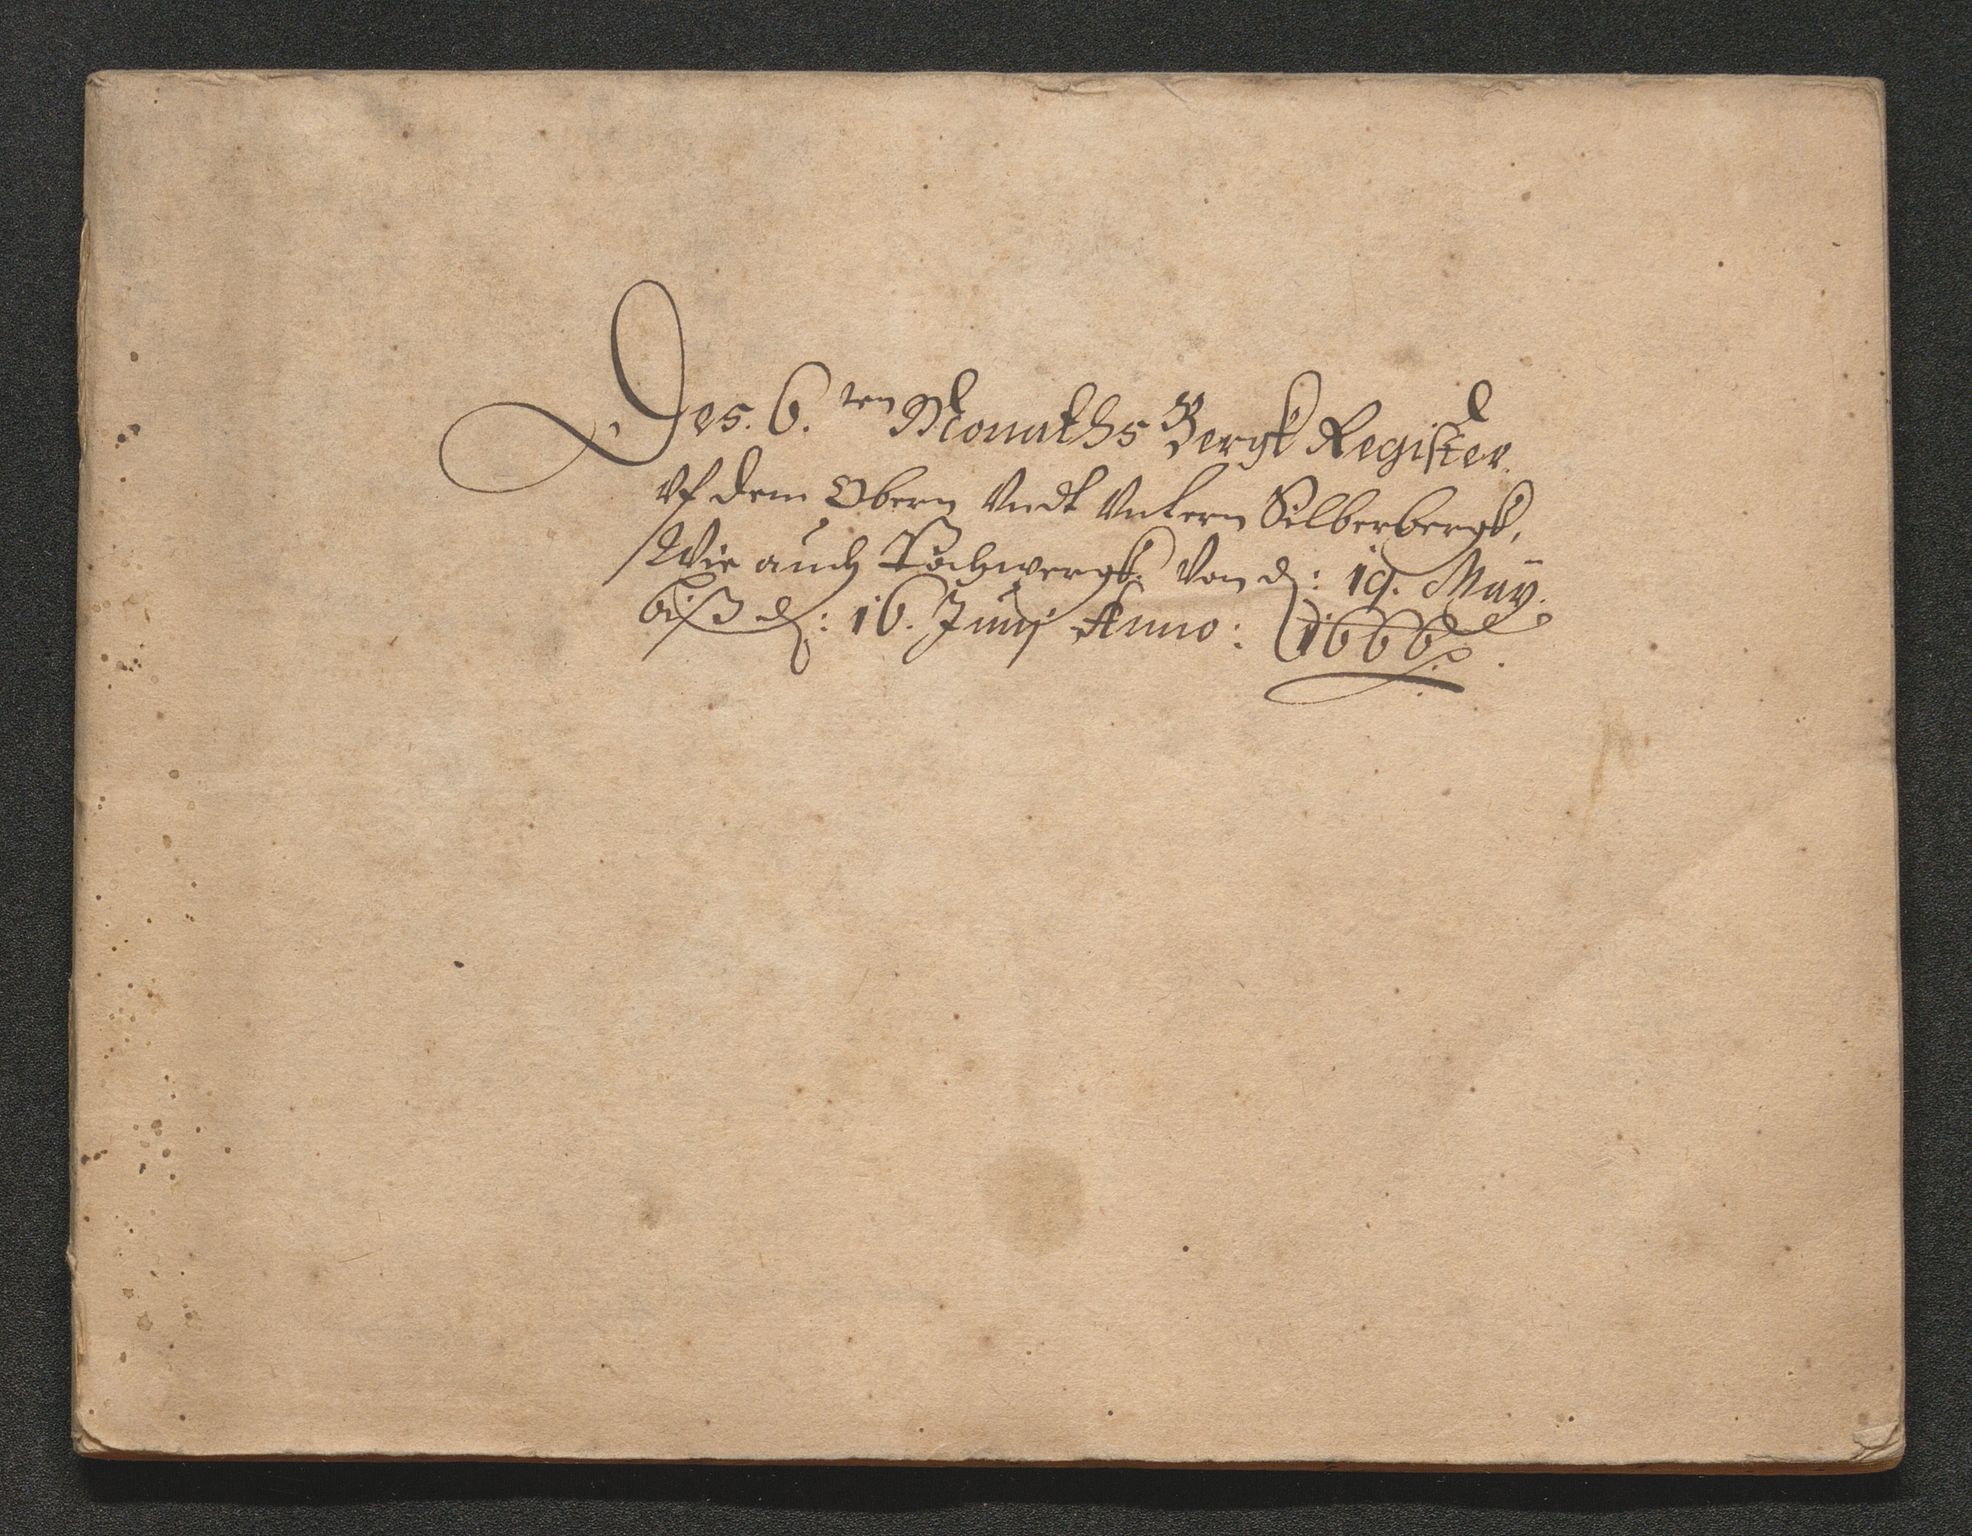 Des. 6.ten Monaths Bergk Register.
Vf dem Obern Vndt Vntern Silberbergk,
Wie auch Pochwergk. Von d: 19. Maÿ.
biß d: 16. Junij Anno: 1666.